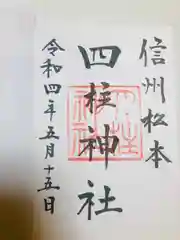 信州松本
四柱神社
令和四年五月十五日